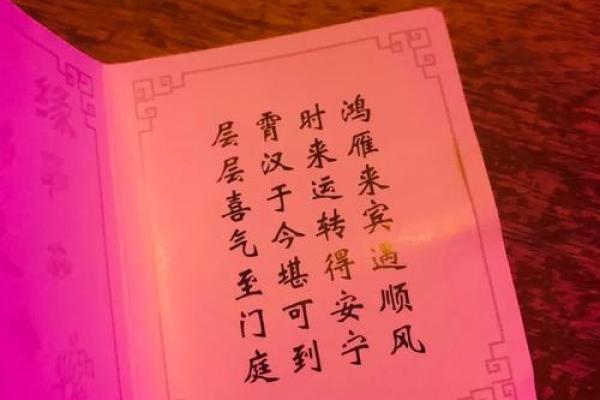 鸿雁来宾遇顺风
时来运转得安宁
霄汉于今堪可到
层层喜气至门庭
缘